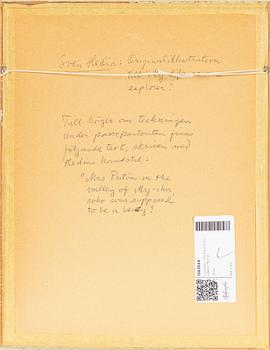 Sven Hedin: Originalillustration
till "My life as an
explorer".
Till höger om teckningen
under passepartouten finns
följande text, skriven med
Hedins handstil:
"Mrs Putön in the
valley of My-chu,
who was supposed
to be a beauty!